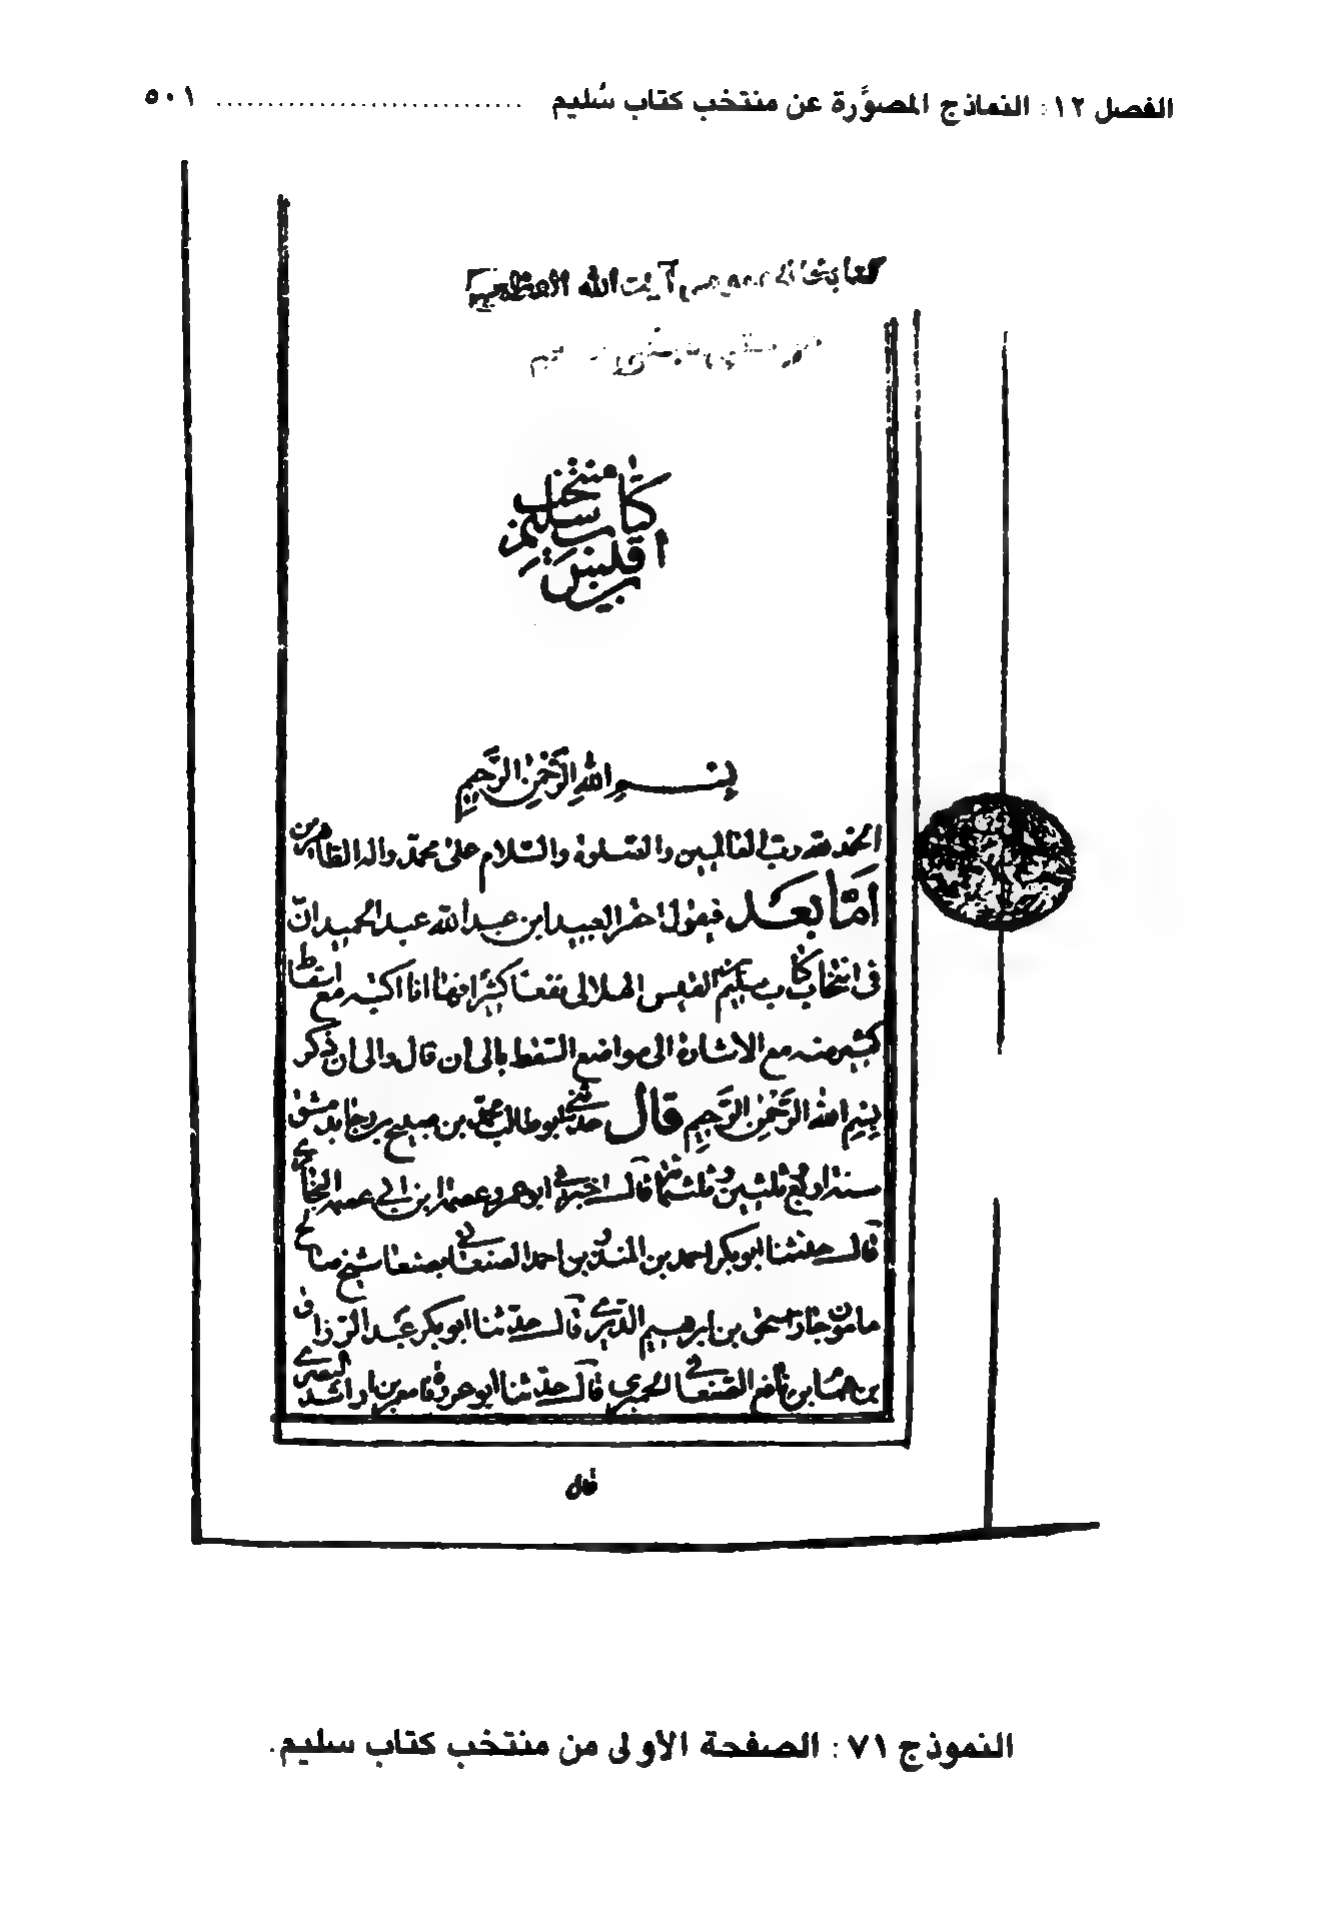 الفصل ١٢: النماذج المصوَّرة عن منتخب كتاب سُليم .............................. ٥٠١
آيت الله العظمى
منتخب
كتاب سليم بن
قيس
بِسْمِ اللهِ الرَّحْمٰنِ الرَّحِيمِ
الحمد لله رب العالمين والصلوة والسلام على محمد واله الطاهرين
امّا بَعَد فيقول احقر العبيد ابن عبد الله عبد الحميد انّ
فى انتخاب كتاب سليم بن القيس الهلالى نفعا كثيرا فها انا اكتبه مع اسقاط
كثير منه مع الاشارة الى مواضع السقط بالى ان قال والى ان ذكر
بِسْمِ اللهِ الرَّحْمٰنِ الرَّحِيمِ قال حدثني ابو طالب محمد بن صبيح بن رجا بدمشق
سنة اربع وثلثين وثلثمائة قال اخبرني ابو عمرو عصمة ابن ابي عصمة البخاري
قال حدثنا ابو بكر احمد بن المنذر بن احمد الصنعاني بصنعا شيخ صالح
مامون جار اسحق بن ابرهيم الدبري قال حدّثنا ابو بكر عَبد الرزاق
بن همام بن نافع الصنعاني الحميري قال حدّثنا ابو عروة معمر بن راشد البصري
قال
النموذج ٧١: الصفحة الأولى من منتخب كتاب سليم.